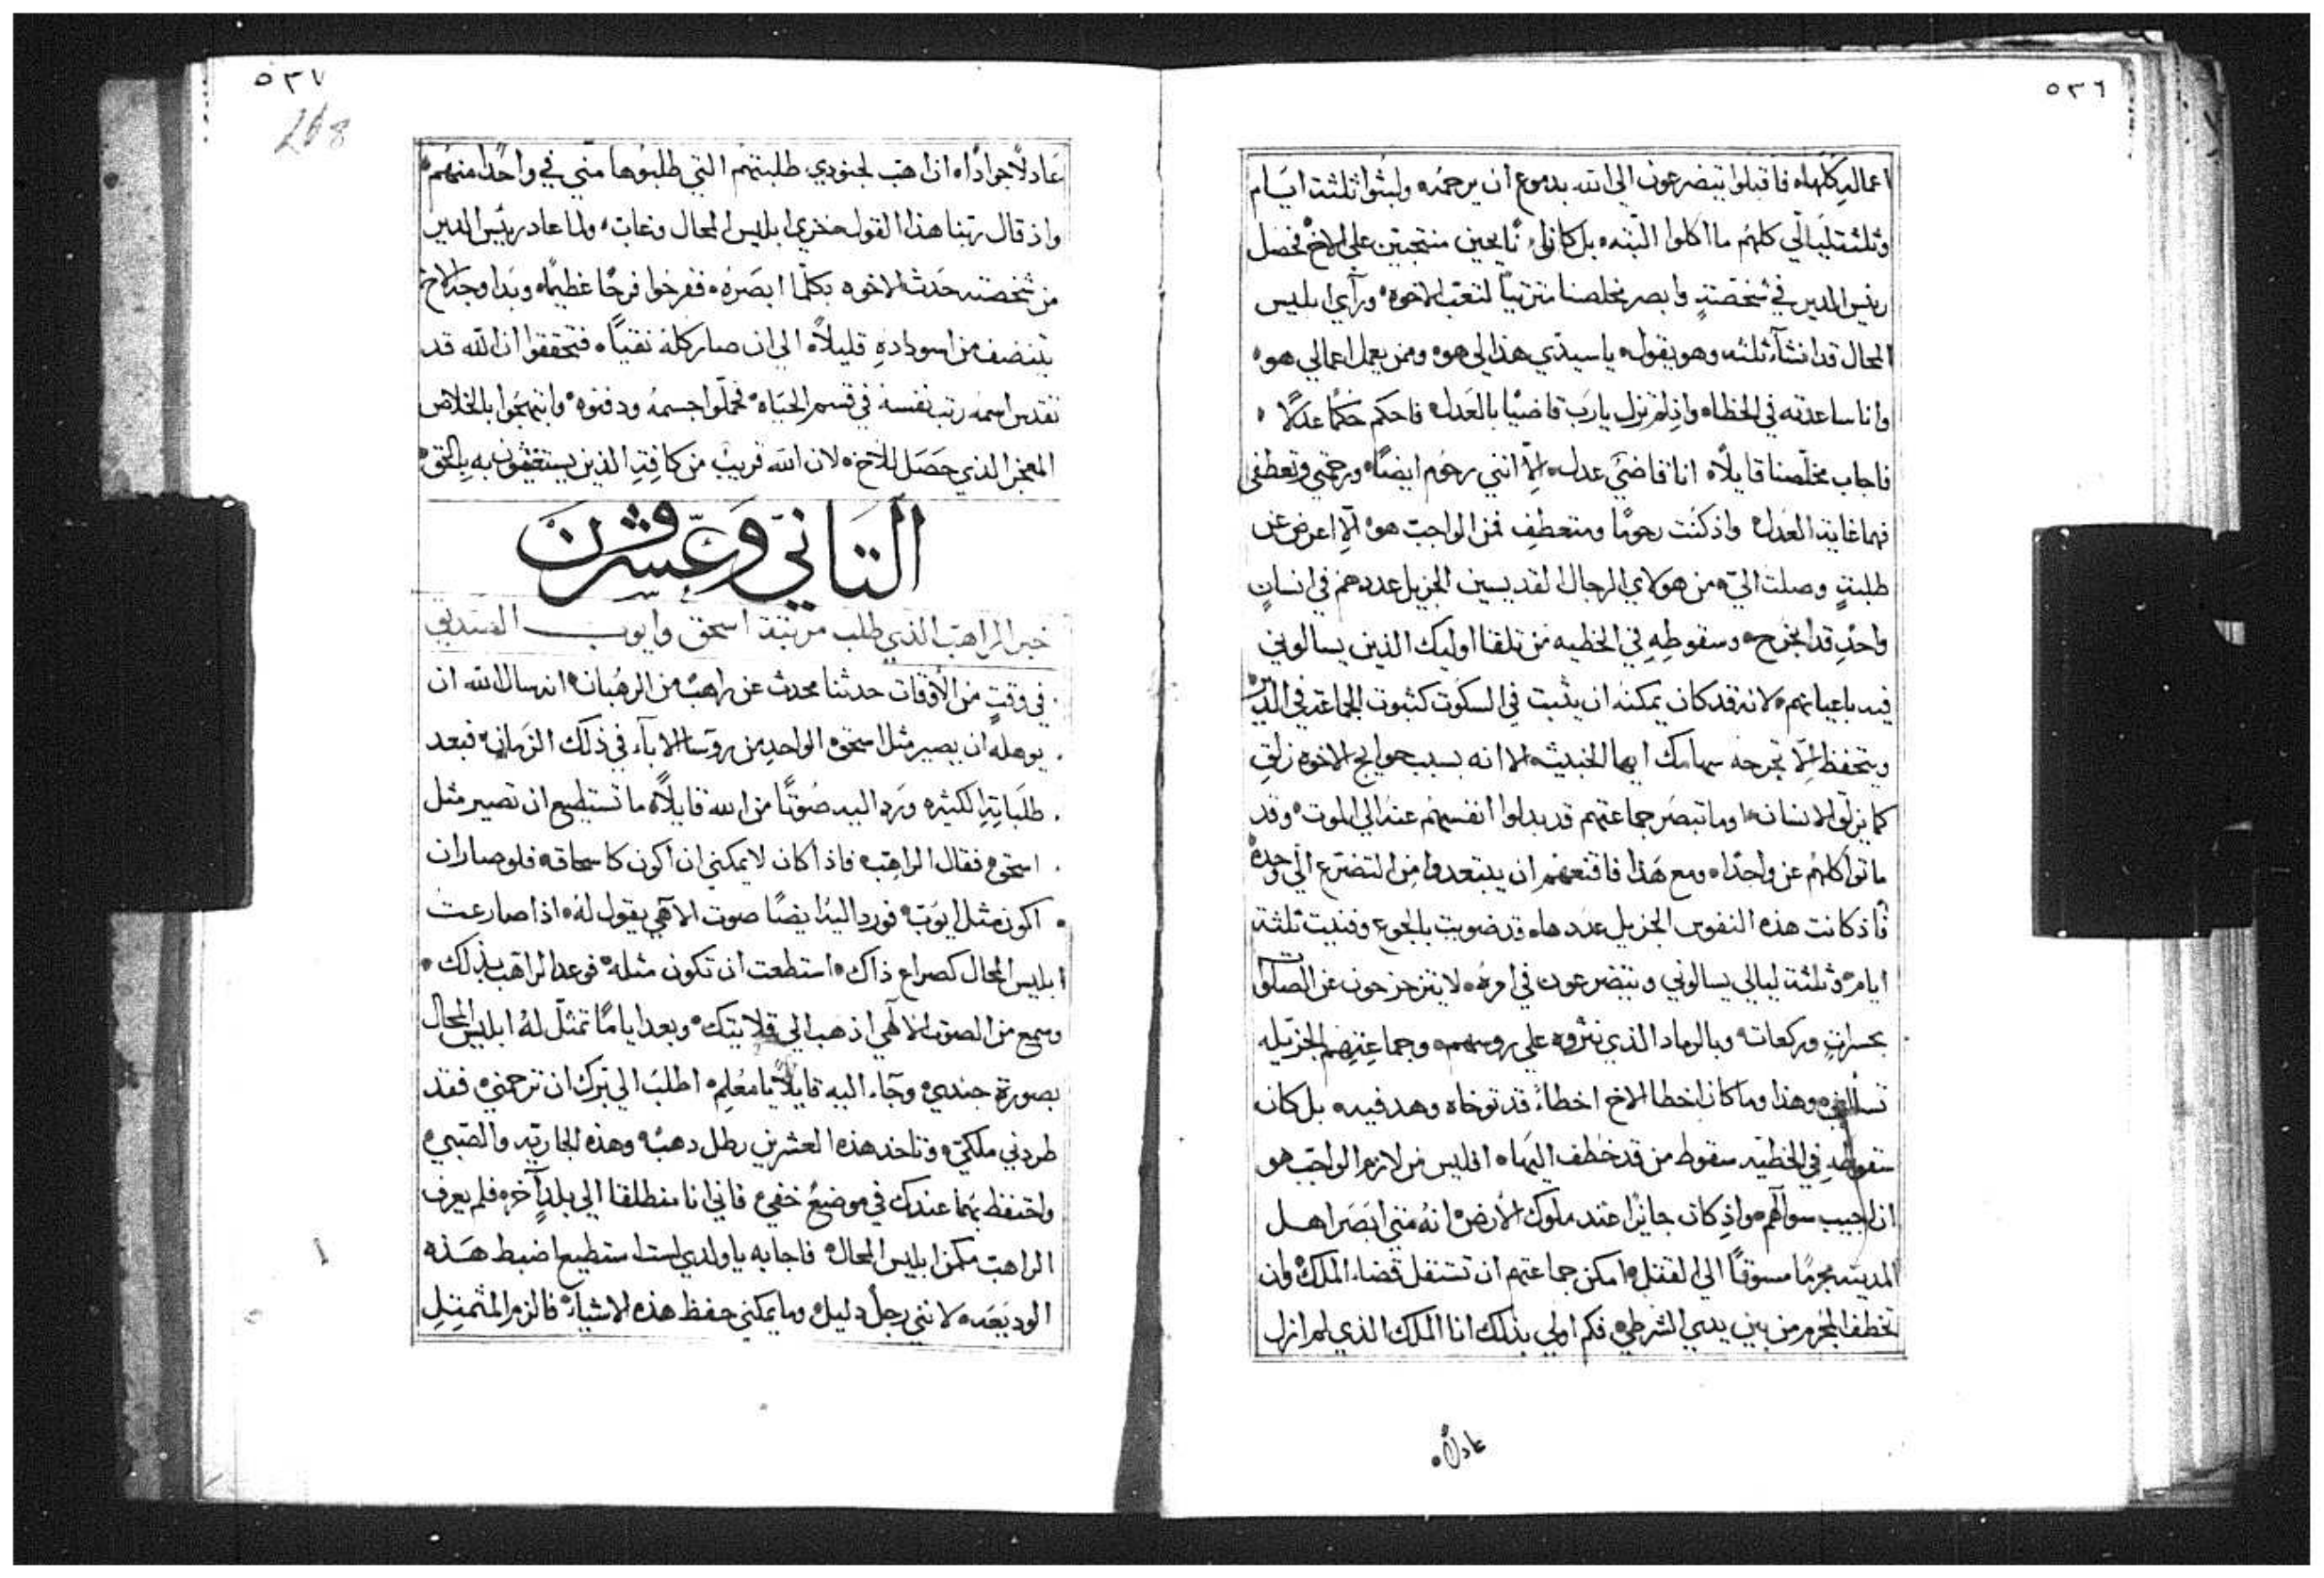 ٥٣٦
اعماله كلها، فاقبلوا يتضرعون الى الله بدموع ان يرحمه ولبثوا ثلثة ايام
وثلثة ليالي كلهم ما اكلوا البته، بل كانوا نايحين منتحبين علي الاخ فحصل
رئيس الدير في شخصةٍ وابصر مخلصنا مترثياً لتعب الاخوة ورآي ابليس
المحال قد انشآ ثلثه وهو يقول، يا سيدي هذا لي هو، وممن يعمل اعمالي هو،
وانا ساعدته في الخطاه وان لم تزل يارب قاضيًا بالعدل، فاحكم حكمًا عدلًا،
فاجاب مخلصنا قايلًا، انا قاضي عدل، الّا انني رحوم ايضًا، ورحمتي وتعطفي
فهما غاية العدل، واذ كنت رحومًا ومتعطف فمن الواجب هو، الّا اعرض عن
طلبةٍ وصلت الي، من هولاي الرجال القديسين الجزيل عددهم في انسانٍ
واحدٍ قد انجرح، وسقوطه في الخطيه من تلقا اوليك الذين يسالوني
فيه باعيانهم، لانه قد كان يمكنه ان يثبت في السكوت كثبوت الجماعة في الدير
ويتحفظ الّا تجرحه سهامك ايها الخبيث، الا انه بسبب حوايج الاخوه زلق
كما يزلق الانسان، اوما تبصر جماعتهم قد بدلوا انفسهم عنه الي الموت، وقد
ماتوا كلهم عن واحدًا، ومع هذا فاقنعهم ان يبتعدوا من التضرع الي وحده
فاذ كانت هذه النفوس الجزيل عددها، قد ضويت بالجوع وفنيت ثلثة
ايام، وثلثة ليالي يسالوني ويتضرعون في امره، لا يتزحزحون عن الصلوة
بحسراتٍ وركعات، وبالرماد الذي نثروه علي روسهم، وجماعتهم الجزيله
تسألني، وهذا وما كان اخطا الاخ اخطاءً قد توخاه وهد فيه، بل كان
سقوطه في الخطيه سقوط من قد خطف اليها، افليس من لازم الواجب هو
ان اجيب سوآلهم، واذ كان جايزًا عند ملوك الارض، انه متي ابصر اهل
المدينه مجرمًا مسوقًا الي القتل، امكن جماعتهم ان تستقل قضاء الملك، وان
تخطف المجرم من بين يدي الشرطي، فكم اولي بذلك انا الملك الذي لم ازل
عادلًا،
٥٣٧
268
عادلًا جوادًا، ان اهب لجنودي طلبتهم التي طلبوها منّي في واحدًا منهم،
واذ قال ربنا هذا القول، خزي ابليس المحال وغاب، ولما عاد رئيس الدير
من شخصته حدث الاخوه بكلما ابصره، ففرحوا فرحًا عظيمًا، وبدا وجه الاخ
يتنضف من اسوداده قليلًا، الي ان صار كله نقياً، فتحققوا ان الله قد
تقدس اسمه رتب نفسه في قسم الحياه، فحملوا جسمه ودفنوه، وابتهجوا بالخلاص
المعجز الذي حصل للاخ، لان الله قريب من كافة الذين يستغيثون به بالحق،
التاني وعشرون
خبر الراهب الذي طلب مرتبة اسحق وايوب الصديق
في وقتٍ من الأوقات حدثنا محدث عن راهب من الرهبان، انه سال الله ان
يوهله ان يصير مثل اسحق، الواحد من روسا الاباء في ذلك الزمان، فبعد
طلباته الكثيره ورد اليه صوتًا من الله قايلًا، ما تستطيع ان تصير مثل
اسحق، فقال الراهب، فاذا كان لا يمكني ان اكون كاسحاق، فلو صار ان
اكون مثل ايوب، فورد اليه ايضًا صوت الآهي يقول له، اذا صارعت
ابليس المحال كصراع ذاك، استطعت ان تكون مثله، فوعد الراهب بذلك،
وسمع من الصوت الالهي اذهب الي قلايتك، وبعد ايامًا تمثل له ابليس المحال
بصورة جندي، وجآء اليه قايلًا يا معلم، اطلب الي تبرك ان ترحمني، فقد
طردني ملكتي، وتاخد هذه العشرين رطل دهب، وهذه الجاريه والصبي،
واحتفظ بهما عندك في موضعٌ خفي، فاني انا منطلقا الي بلدٍ آخر، فلم يعرف
الراهب مكمن ابليس المحال، فاجابه يا ولدي لست استطيع اضبط هذه
الوديعه، لانني رجل دليل، وما يمكني حفظ هذه الاشيآء، فالزم المتمثل